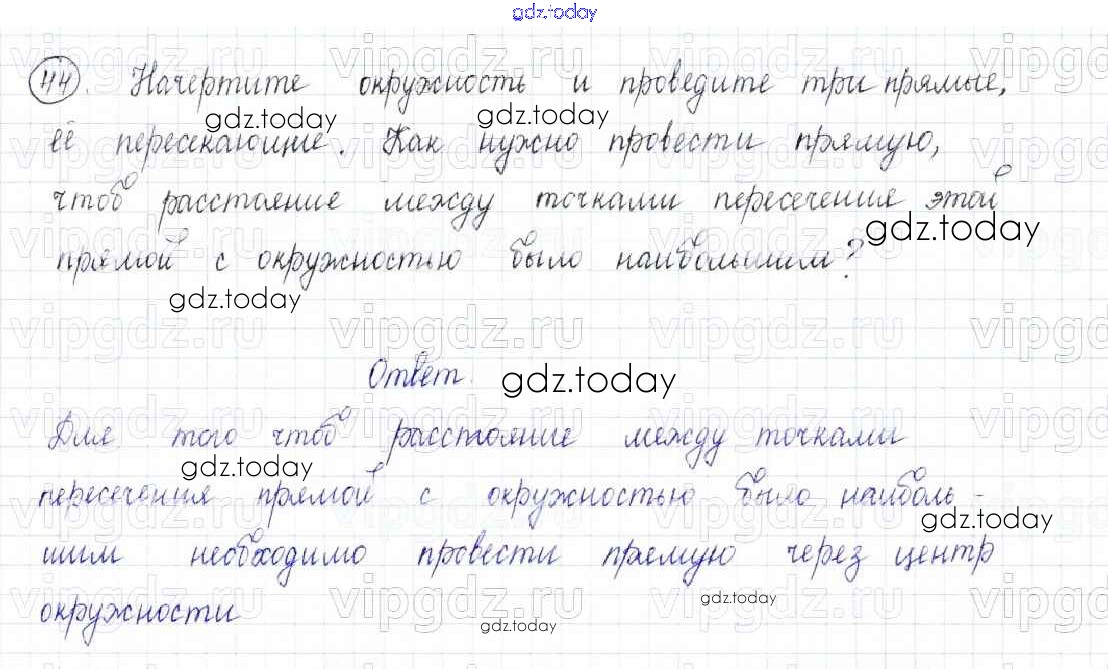 gdz.today
44. Начертите окружность и проведите три прямые,
gdz.today gdz.today
её пересекающие. Как нужно провести прямую,
чтоб расстояние между точками пересечения этой
gdz.today
прямой с окружностью было наибольшим?
gdz.today
vipgdz.ru
Ответ.
gdz.today
Для того чтоб расстояние между точками
gdz.today
пересечения прямой с окружностью было наиболь-
gdz.today
шим необходимо провести прямую через центр
gdz.today
окружности
gdz.today